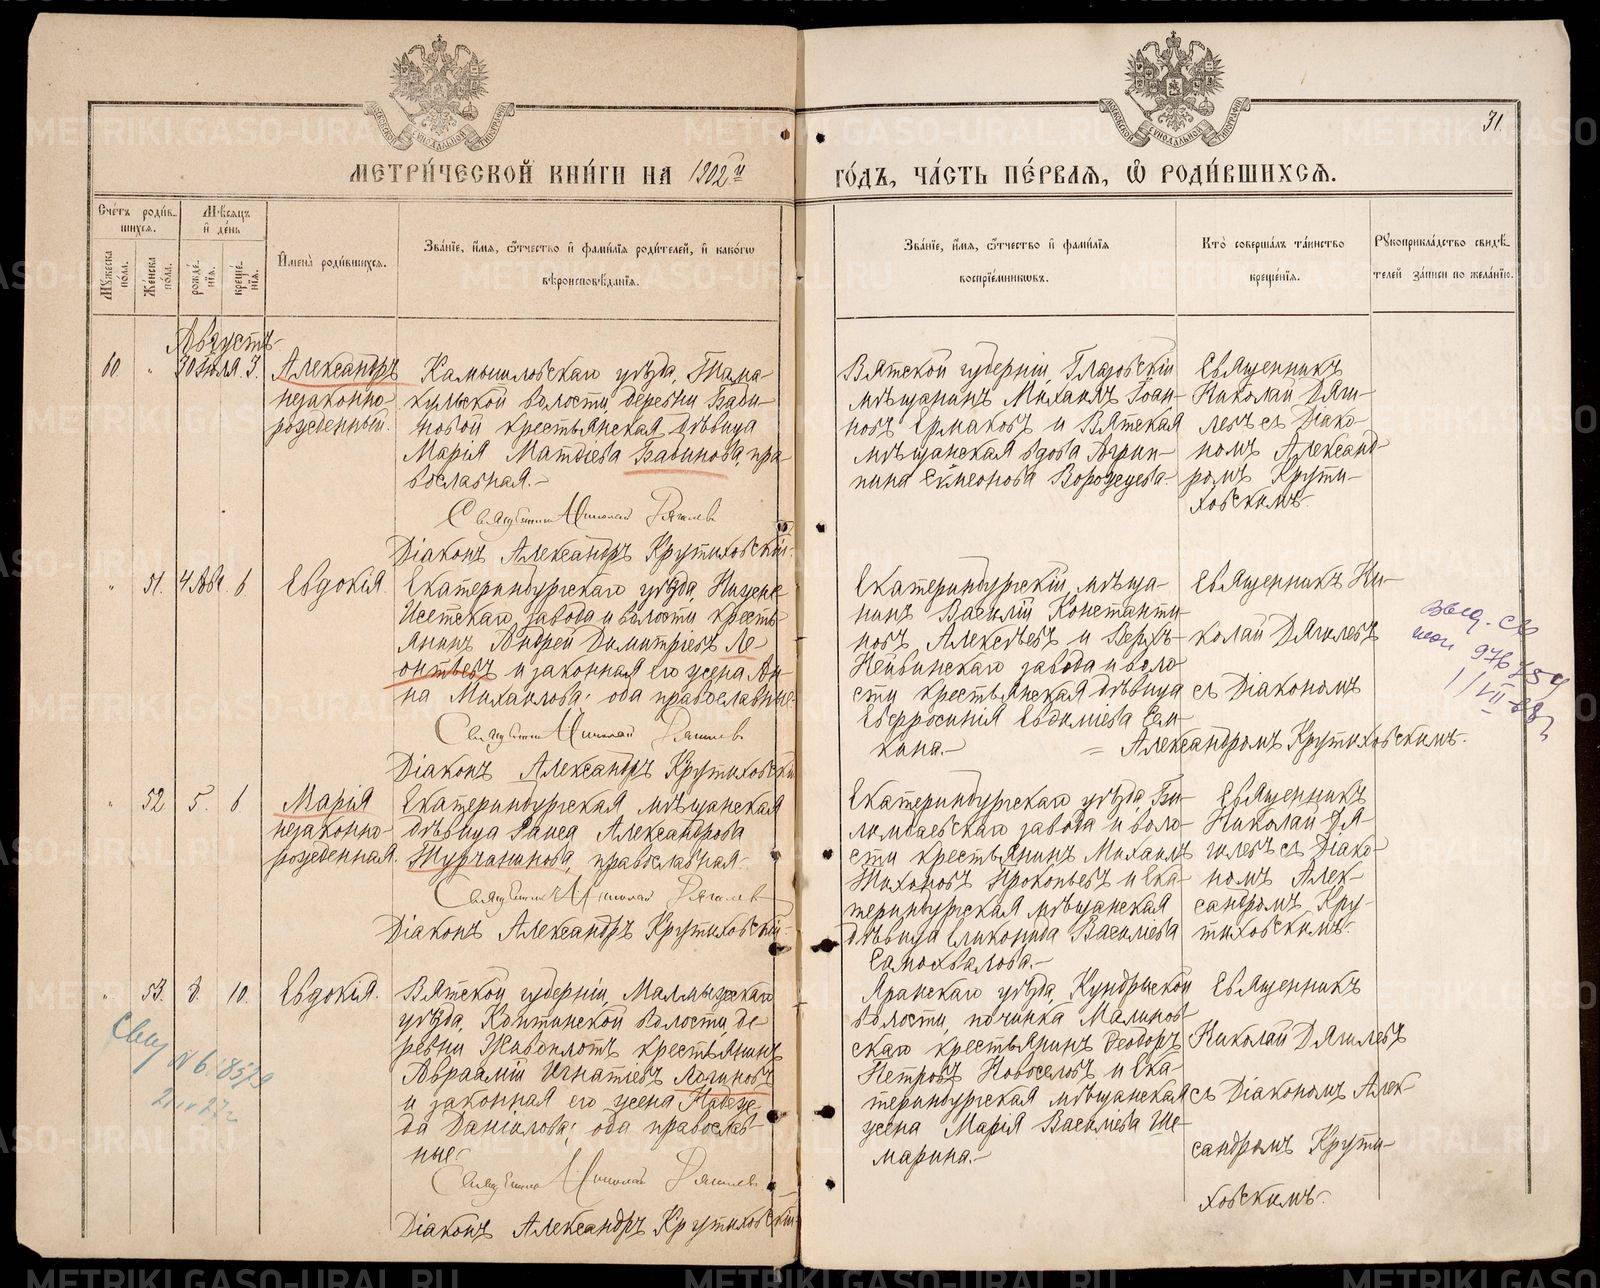 МЕТРИ́ЧЕСКОЙ КНИ́ГИ НА 1902й ГО́ДЪ, ЧА́СТЬ ПЕ́РВАѦ, Ѽ РОДИ́ВШИХСѦ.
31.
Сче́тъ роди́в-
шихсѧ.
Мѣ́сѧцъ
и҆ де́нь
Мꙋ́жеска
по́ла.
Же́нска
по́ла.
рожде́-
нїѧ.
креще́-
нїѧ.
И҆мена̀ роди́вшихсѧ.
Зва́нїе, и҆́мѧ, ѻ҆́тчество и҆ фами́лїѧ роди́телей, и҆ како́гѡ
вѣроисповѣ́данїѧ.
Зва́нїе, и҆́мѧ, ѻ҆́тчество и҆ фами́лїѧ
воспрїе́мниковъ.
Кто̀ соверша́лъ та́инство
креще́нїѧ.
Рꙋкоприкла́дство свидѣ́-
телей за́писи по жела́нїю.
Августъ
60 " 30 Іюля. 3.
Александръ
незаконно-
рожденный.
Камышловскаго уѣзда, Тама-
кульской волости, деревни Баби-
новой крестьянская дѣвица
Марія Матѳіева Бабинова, пра-
вославная.-
Священникъ Николай Дягилевъ
Діаконъ Александръ Крутиховскій.
Вятской губерніи, Глазовскій
мѣщанинъ Михаилъ Іоан-
новъ Ермаковъ и Вятская
мѣщанская вдова Агрип-
пина Симеонова Ворожцева.
Священникъ
Николай Дяги-
левъ съ Діако-
номъ Александ-
ромъ Крути-
ховскимъ.
" 51. 4 Авг. 6
Евдокія
Екатеринбургскаго уѣзда, Нижне-
Исетскаго завода и волости кресть-
янинъ Андрей Димитріевъ Ле-
онтьевъ и законная его жена Ан-
на Михаилова; оба православные.
Священникъ Николай Дягилевъ
Діаконъ Александръ Крутиховскій
Екатеринбургскій мѣща-
нинъ Василій Константи-
новъ Алексѣевъ и Верхъ-
Нейвинскаго завода и воло-
сти крестьянская дѣвица
Евфросинія Евдокіева Сем-
кина.-
Священникъ Ни-
колай Дягилевъ
съ Діакономъ
= Александромъ Крутиховскимъ.
выд. св
1/VII-88г
" 52 5. 6
Марія
незаконно-
рожденная.
Екатеринбургская мѣщанская
дѣвица Раиса Александрова
Турчанинова, православная.
Священникъ Николай Дягилевъ
Діаконъ Александръ Крутиховскій.
Екатеринбургскаго уѣзда, Би-
лимбаевскаго завода и воло-
сти крестьянинъ Михаилъ
Тихоновъ Прокопьевъ и Ека-
теринбургская мѣщанская
дѣвица Еликонида Василіева
Самохвалова.-
Священникъ
Николай Дя-
гилевъ съ Діако-
номъ Алек-
сандромъ Кру-
тиховскимъ.
" 53. 8. 10.
Евдокія.
Вятской губерніи, Малмыжскаго
уѣзда, волости, де-
ревни крестьянинъ
Авраамій Игнатіевъ Логиновъ
и законная его жена Надеж-
да Даніилова; оба православ-
ные.
Священникъ Николай Дягилевъ
Діаконъ Александръ Крутиховскій
Яранскаго уѣзда, Кундышской
волости, починка Малинов-
скаго крестьянинъ Ѳеодоръ
Петровъ Новоселовъ и Ека-
теринбургская мѣщанская
жена Марія Василіева Ше-
марина.-
Священникъ
Николай Дягилевъ
съ Діакономъ Алек-
сандромъ Крути-
ховскимъ.